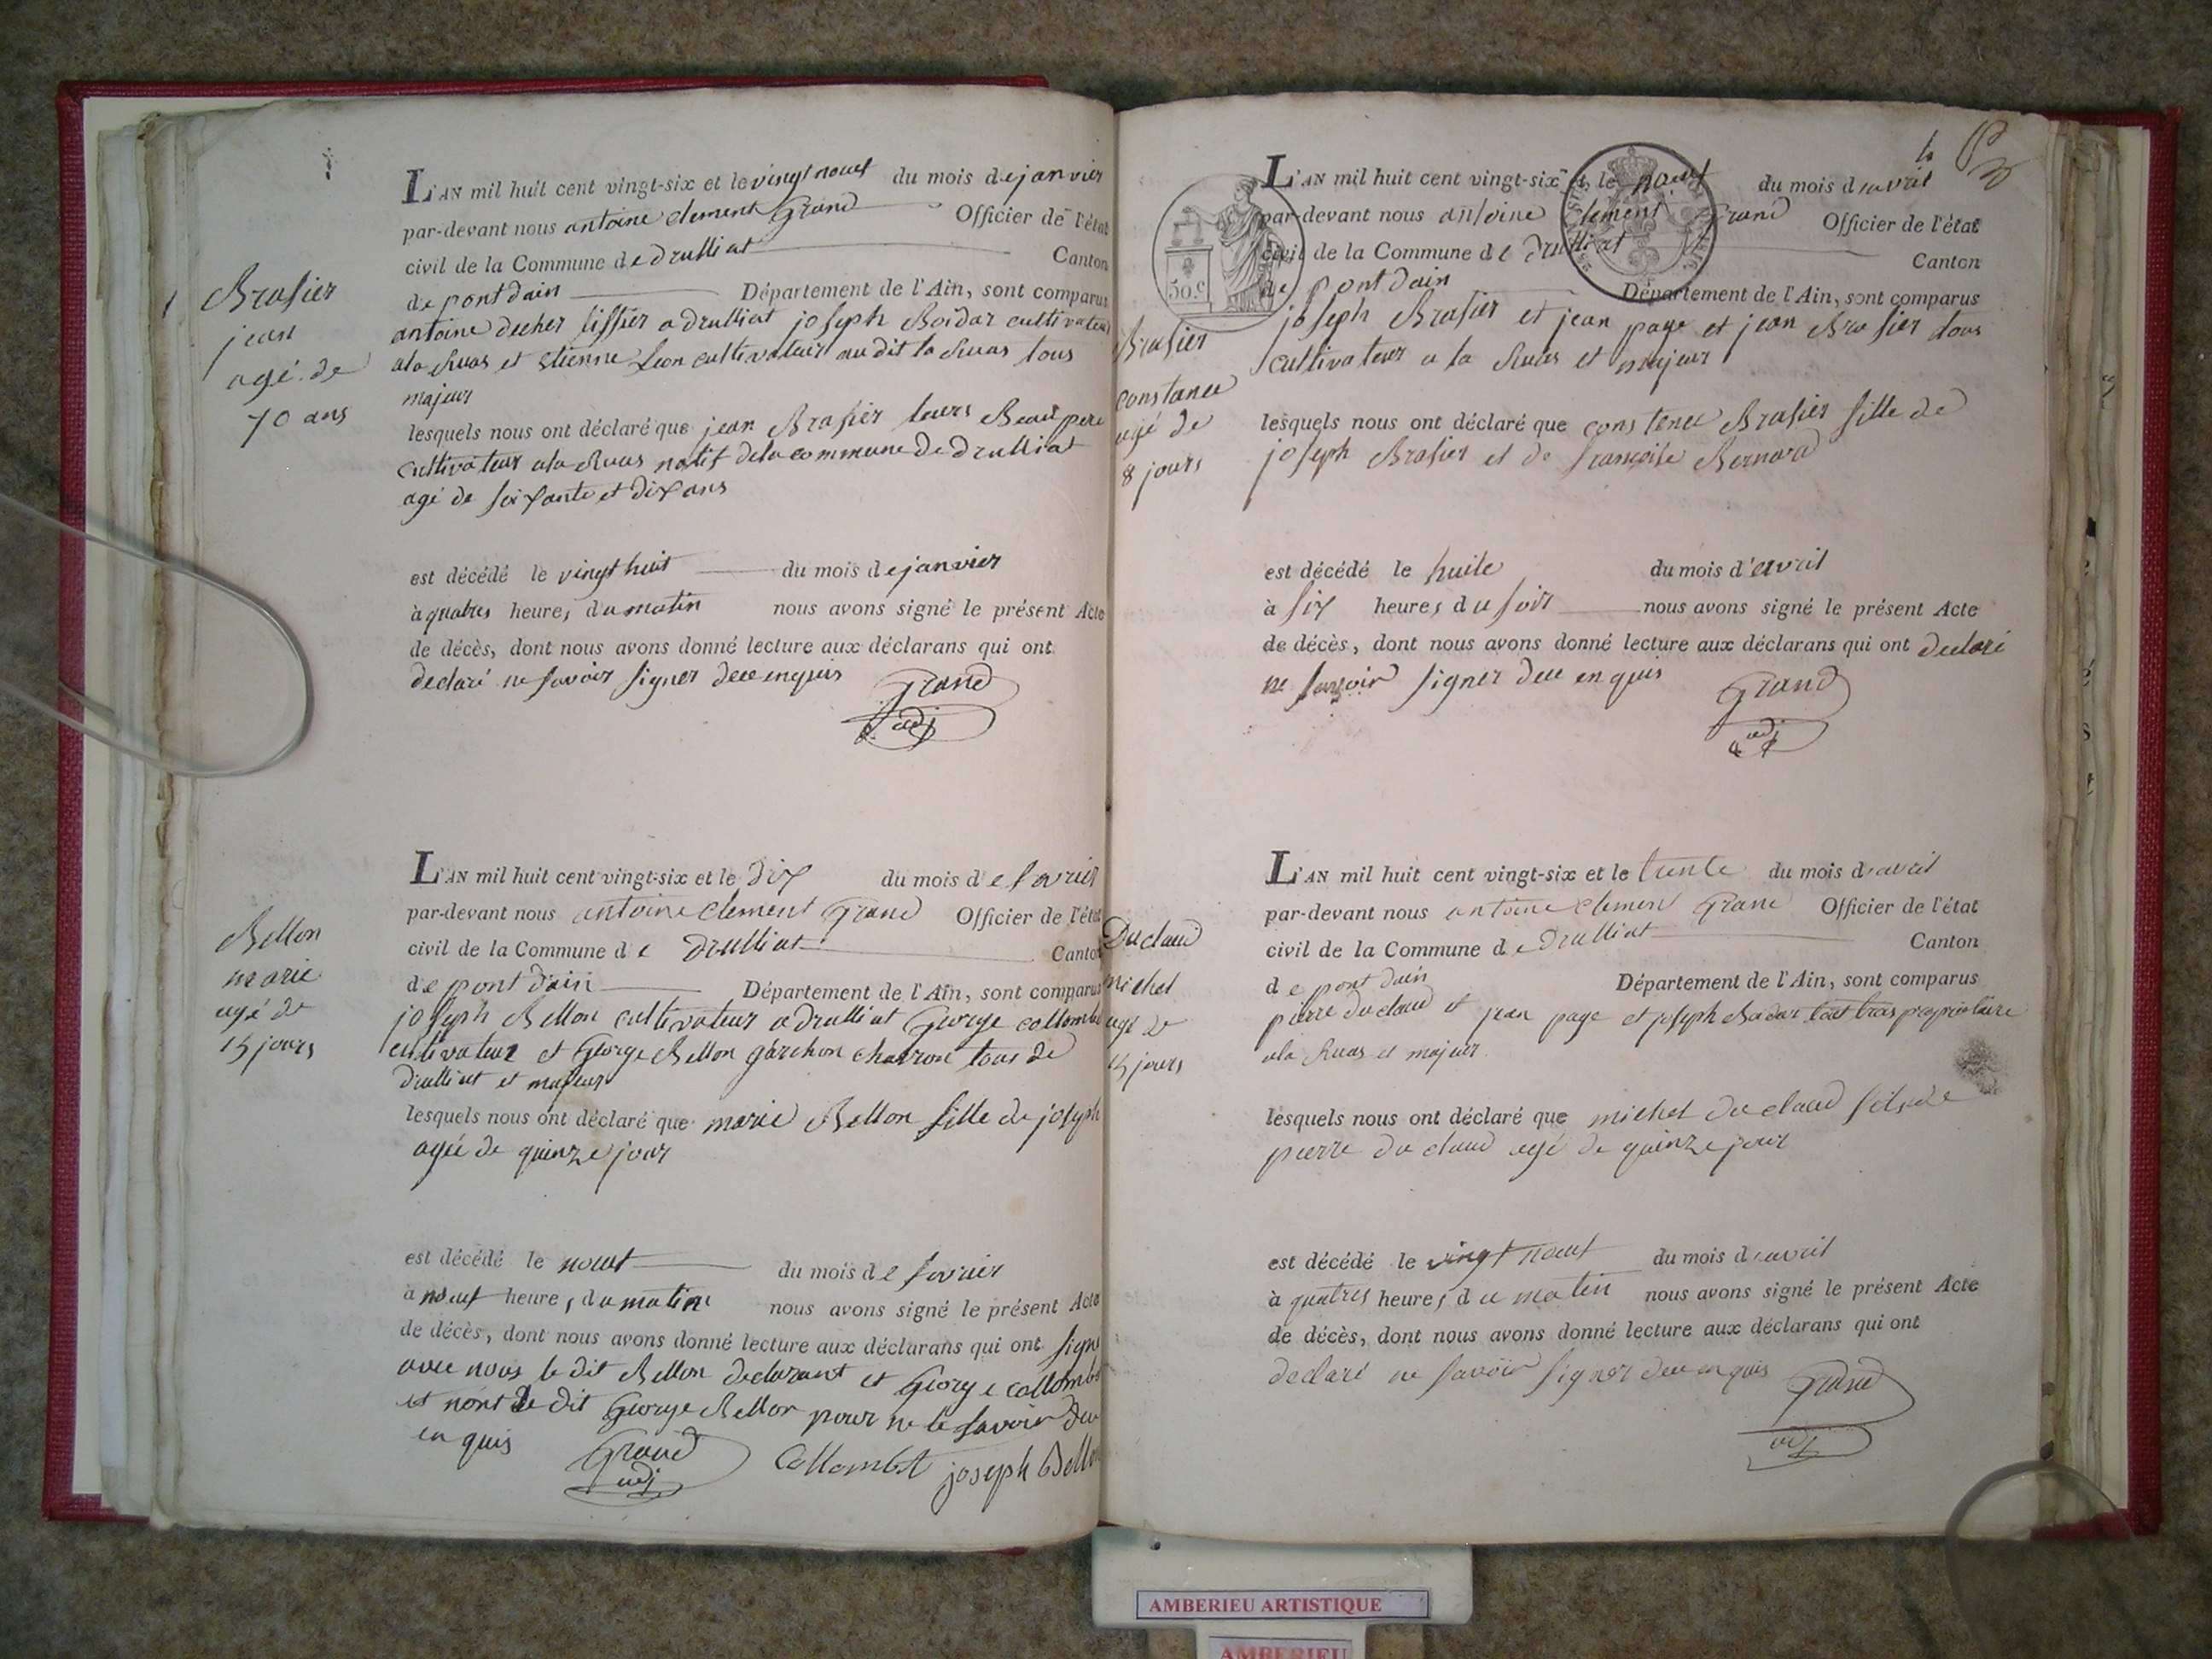 L'AN mil huit cent vingt-six et le vingt noeuf du mois de janvier
par-devant nous antoine clement Grand Officier de l'état
civil de la Commune de drulliat Canton
de pont dain Département de l'Ain, sont comparus
antoine decher tissier a drulliat joseph Boidar cultivateur
a la Ruas et Etienne Leon cultivateur au dit la Ruas tous
majeur
Brasier
jean
agé de
70 ans
lesquels nous ont déclaré que jean Brasier leurs Beau pere
cultivateur a la Ruas natif de la commune de drulliat
agé de soixante et dix ans
est décédé le vingt huit du mois de janvier
à quatres heures du matin nous avons signé le présent Acte
de décès, dont nous avons donné lecture aux déclarans qui ont
declaré ne savoir signer dece enquis Grand
adj
L'AN mil huit cent vingt-six et le dix du mois de fevrier
par-devant nous antoine clement Grand Officier de l'état
civil de la Commune de Drulliat Canton
de pont d'ain Département de l'Ain, sont comparus
joseph Bellon cultivateur a drulliat George collombe
cultivateur et George Bellon garchon charron tous de
Drulliat et majeur
Bellon
marie
agé de
15 jours
lesquels nous ont déclaré que marie Bellon fille de joseph
agée de quinze jour
est décédé le noeuf du mois de fevrier
à noeuf heures du matin nous avons signé le présent Acte
de décès, dont nous avons donné lecture aux déclarans qui ont signé
avec nous le dit Bellon declarant et George collombt
et nont le dit George Bellon pour ne le savoir de ce
enquis Grand Collombt joseph Bellon
adj
L'AN mil huit cent vingt-six et le noeuf du mois d'avril
par-devant nous antoine clement Grand Officier de l'état
civil de la Commune de Drulliat Canton
de pont dain Département de l'Ain, sont comparus
50.c
joseph Brasier et jean page et jean Brasier tous
cultivateur a la Ruas et majeur
Brasier
constance
agé de
8 jours
lesquels nous ont déclaré que constence Brasier fille de
joseph Brasier et de françoise Bernard
est décédé le huite du mois d'avril
à six heures du soir nous avons signé le présent Acte
de décès, dont nous avons donné lecture aux déclarans qui ont declaré
ne savoir signer dece enquis Grand
adj
L'AN mil huit cent vingt-six et le trente du mois d'avril
par-devant nous antoine clement Grand Officier de l'état
civil de la Commune de Drulliat Canton
de pont dain Département de l'Ain, sont comparus
pierre du claud et jean page et joseph Badar propriétaire
a la Ruas et majeur
Du claud
michel
agé de
15 jours
lesquels nous ont déclaré que michel du claud fils de
pierre du claud agé de quinze jour
est décédé le vingt noeuf du mois d'avril
à quatres heures du matin nous avons signé le présent Acte
de décès, dont nous avons donné lecture aux déclarans qui ont
declaré ne savoir signer dece enquis Grand
adj
AMBERIEU ARTISTIQUE
AMBERIEU